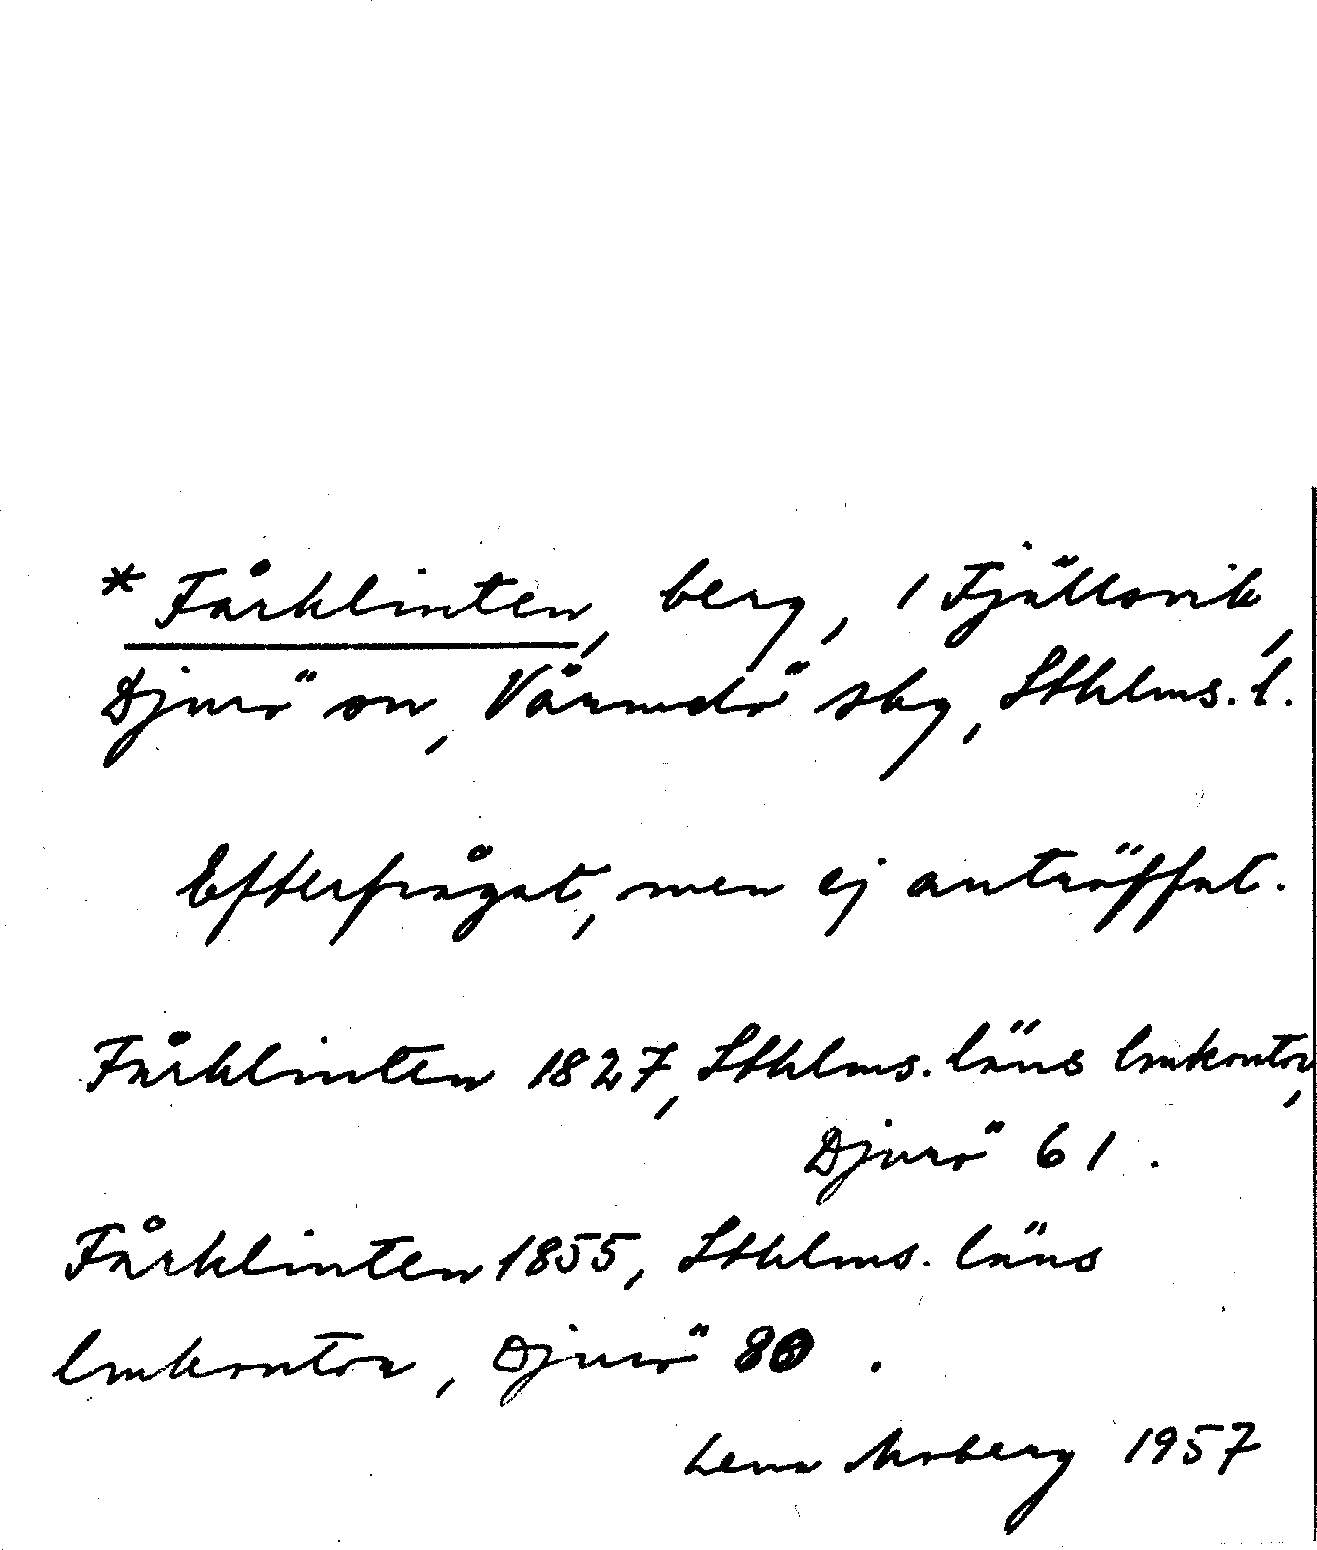 * Fårklinten, berg, 1 Fjällsvik,
Djurö sn, Värmdö skg, Sthlms. l.
Efterfrågat, men ej anträffat.
Fårklinten 1827, Sthlms. läns lmkontor,
Djurö 61.
Fårklinten 1855, Sthlms. läns
lmkontor, Djurö
Lena Moberg 1957